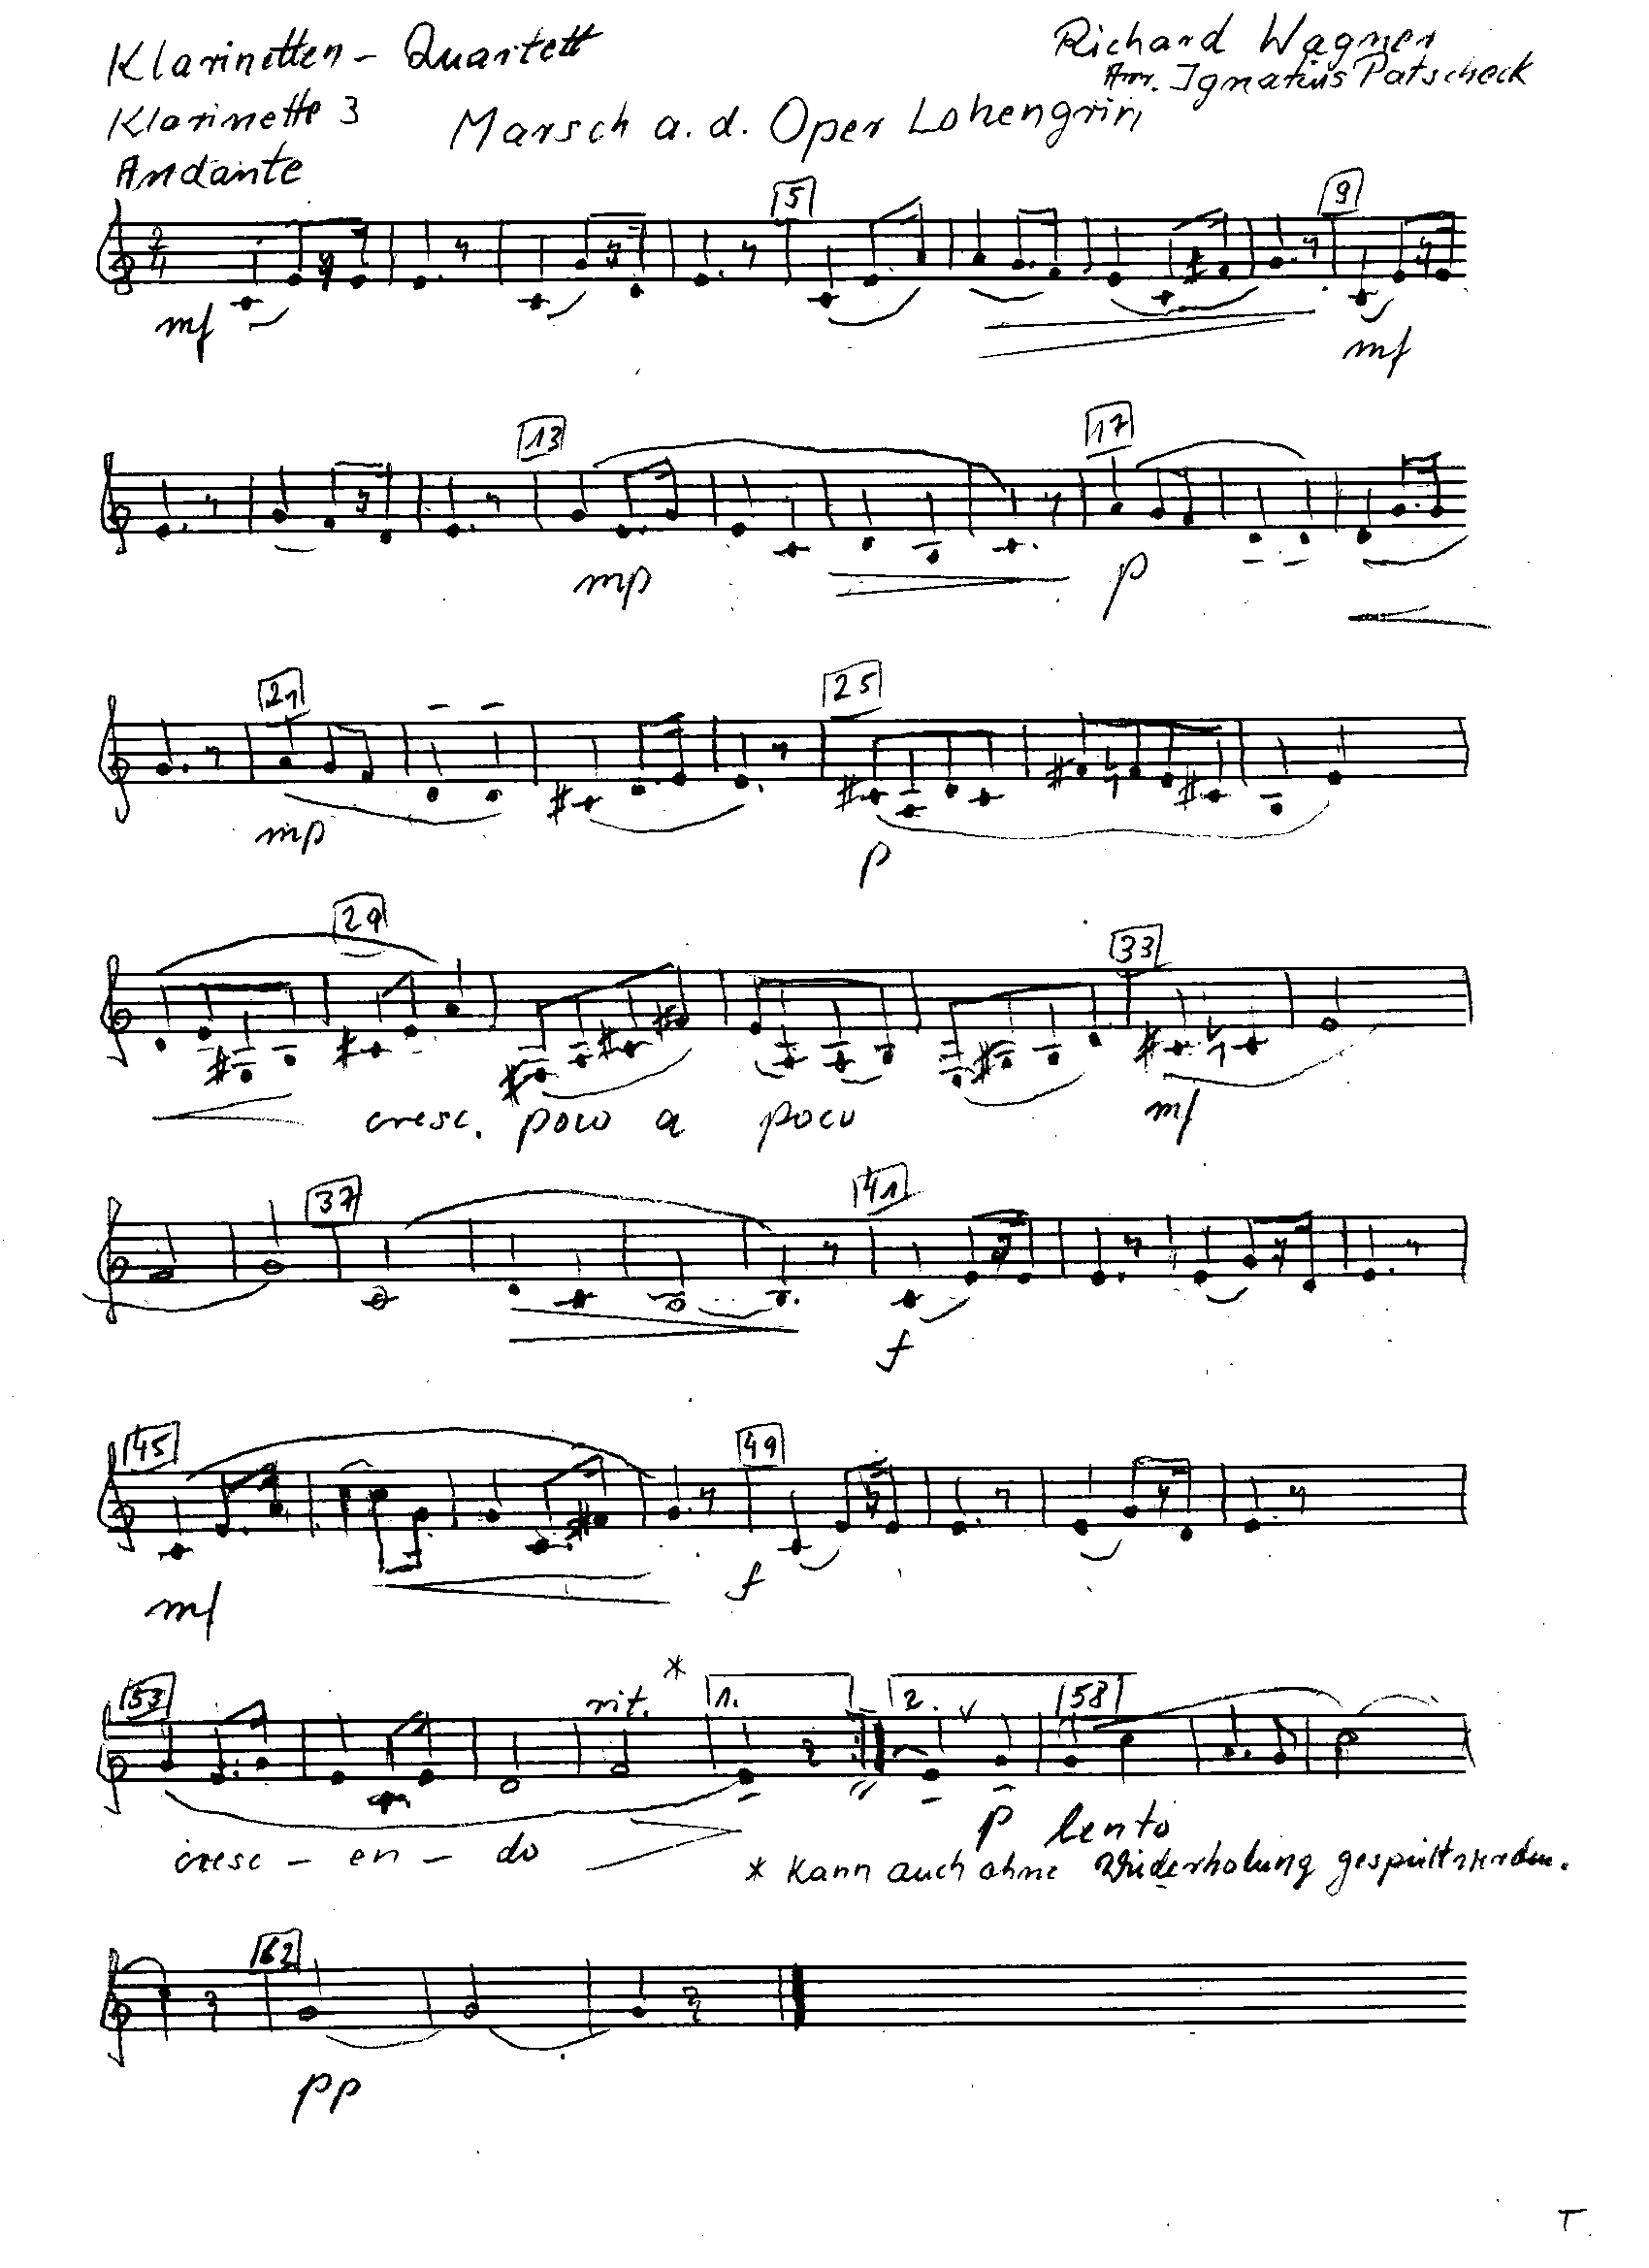 Klarinetten - Quartett
Richard Wagner
Arr. Ignatius Patscheck
Klarinette 3
Marsch a. d. Oper Lohengrin
Andante
5
9
2
4
mf
mf
13
17
mp
p
21
25
mp
p
29
33
cresc. poco a poco
mf
37
41
f
45
49
mf
f
53
rit.
*
1.
2.
58
cresc - en - do
p lento
* Kann auch ohne Wiederholung gespielt werden.
62
pp
T